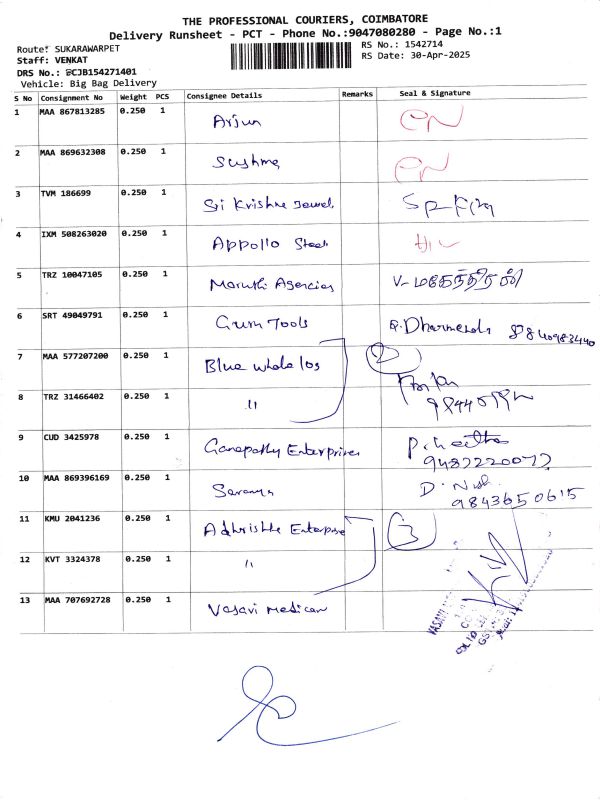 THE PROFESSIONAL COURIERS, COIMBATORE
Delivery Runsheet - PCT - Phone No.:9047080280 - Page No.:1
Route: SUKARAWARPET
RS No.: 1542714
Staff: VENKAT
RS Date: 30-Apr-2025
DRS No.: @CJB154271401
Vehicle: Big Bag Delivery
S No Consignment No Weight PCS Consignee Details Remarks Seal & Signature
1 MAA 867813285 0.250 1 Arjun
2 MAA 869632308 0.250 1 Sushma
3 TVM 186699 0.250 1 Sri Krishna Jewel
4 IXM 508263020 0.250 1 Appollo Steel
5 TRZ 10047105 0.250 1 Maruthi Agencies V- மகேந்திரன்
6 SRT 49049791 0.250 1 Gum Tools Dharmendr
7 MAA 577207200 0.250 1 Blue whale log 2
8 TRZ 31466402 0.250 1 "
9 CUD 3425978 0.250 1 Ganapathy Enterprises
9487220072
10 MAA 869396169 0.250 1 Saranya D. Nish
9843650615
11 KMU 2041236 0.250 1 Adhrishta Enterprise 3
12 KVT 3324378 0.250 1 "
13 MAA 707692728 0.250 1 Vasavi Medical
VASAVI